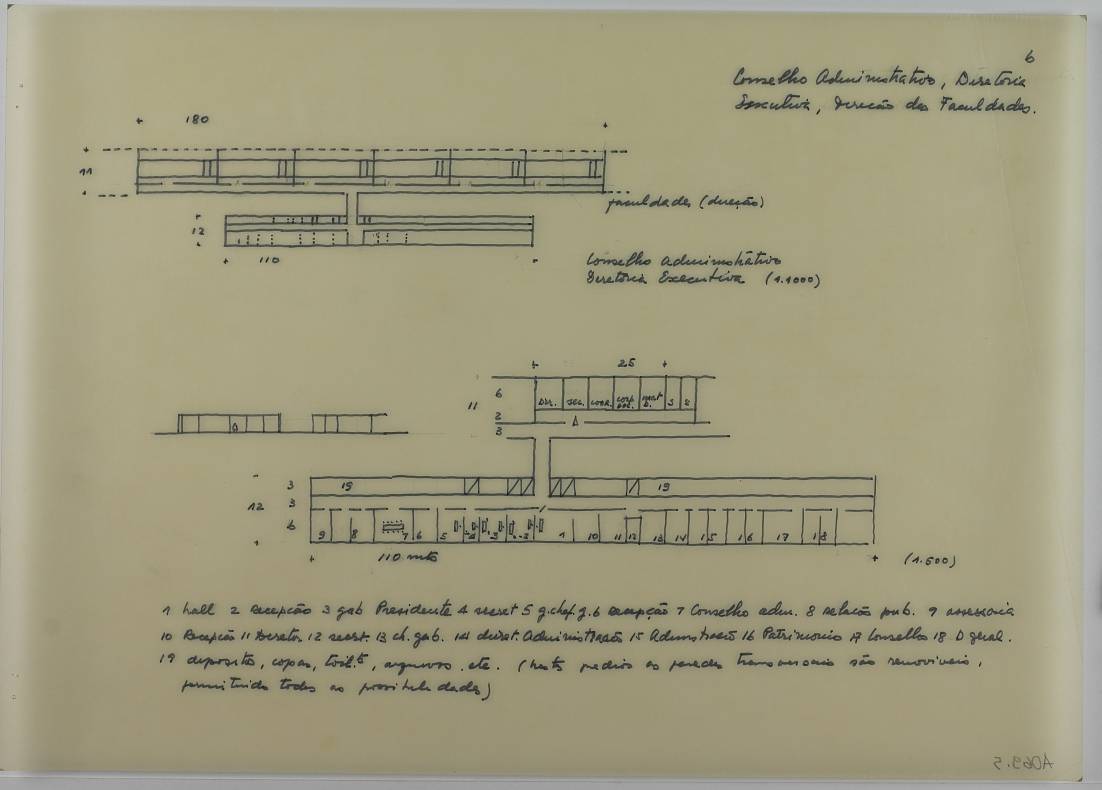 6
Conselho Administrativo, Diretoria
Executiva, Direção das Faculdades.
180
11
faculdades (direção)
12
110
Conselho Administrativo
Diretoria Executiva (1.1000)
25
11
6
2
3
DIR. SEC. COOR. S S
12
3
3
6
19
19
9 8 7 6 5 4 3 2 1 10 11 12 13 14 15 16 17 18
110 mts
(1.500)
1 hall 2 recepção 3 gab Presidente 4 secret 5 g.chef.g. 6 recepção 7 Conselho adm. 8 relação pub. 9 assessoria
10 Recepção 11 Diretor 12 secret. 13 ch. gab. 14 diret. Administração 15 Administração 16 Patrimonio 17 Conselho 18 D geral.
19 depositos, copas, toil.s, arquivos. etc. (neste predio as paredes transversais são removiveis,
permitindo todas as possibilidades)
A069.5